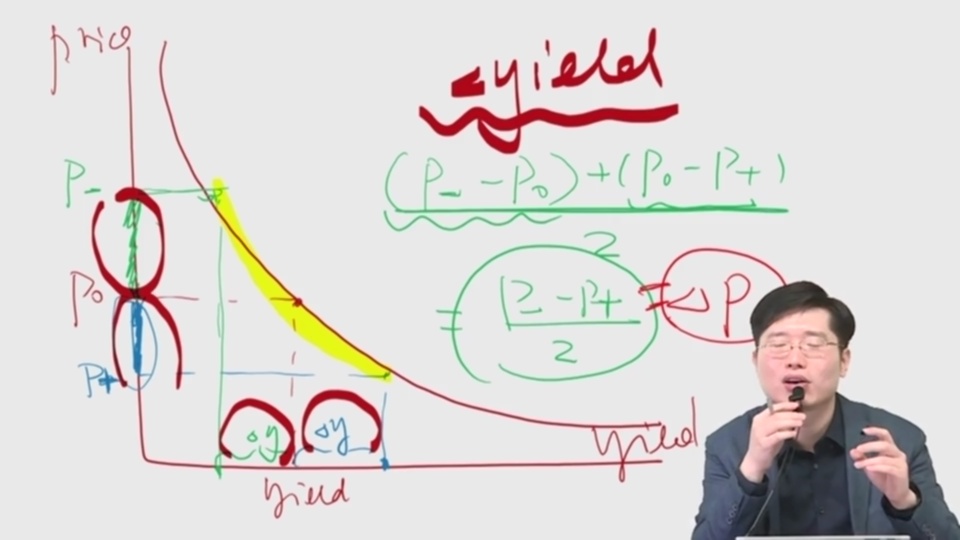 price
△yield
P₋
(P₋ - P₀) + (P₀ - P₊)
2
P₀
= P₋ - P₊ = △P
2
P₊
△y △y
yield
yield